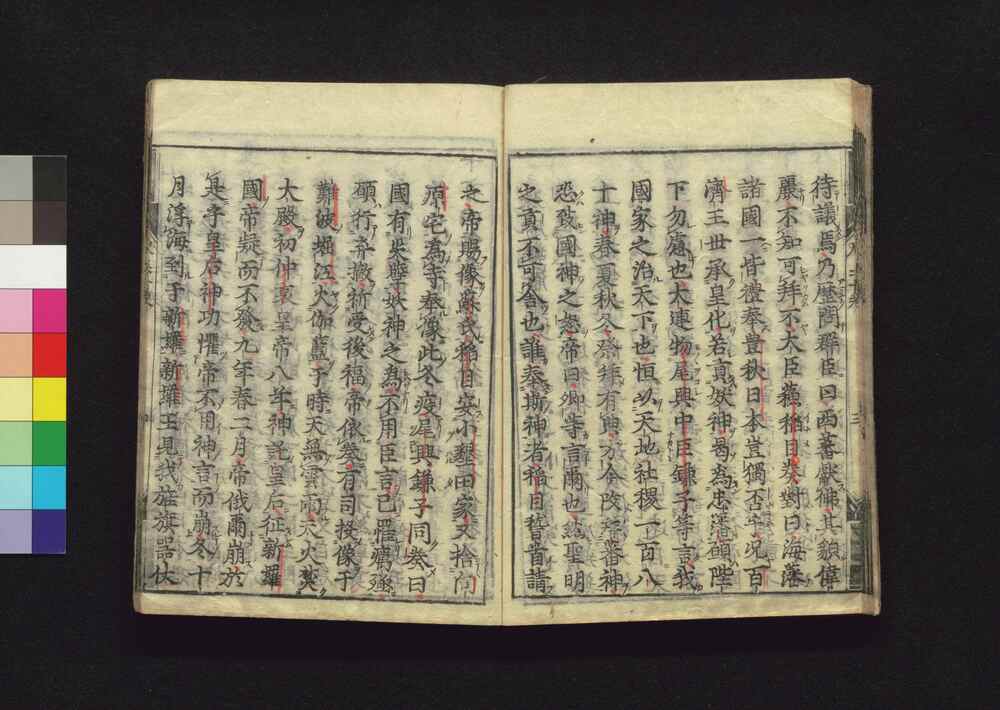 待議焉乃歴問群臣曰西蕃獻佛其貌偉
麗不知可拜不大臣蘇稲目奏對曰海藩
諸國一皆禮奉豈秋日本豈獨否乎況百
濟王世承皇化若貢妖神曷為忠藩願陛
下勿慮也大連物尾輿中臣鎌子等言我
國家之治天下也恒以天地社稷一百八
十神春夏秋冬祭拜有典方今改拜蕃神
恐致國神之怒帝曰卿等言爾也然聖明
之貢不可舍也誰奉斯神者稲目稽首請
之帝賜像蘇氏稲目安小墾田家又捨向
原宅為寺奉像此冬疫尾輿鎌子同奏曰
國有災孽妖神之為不用臣言已罹癘
願行弃撤祈受後福帝依奏有司投像于
難波堀江火伽藍于時天無雲雨天火焚
大殿初仲哀皇帝八年神託皇后征新羅
國帝疑而不發九年春二月帝俄爾崩於
是乎皇后神功懼帝不用神言而崩冬十
月浮海到于新羅新羅王見我旌旗器仗